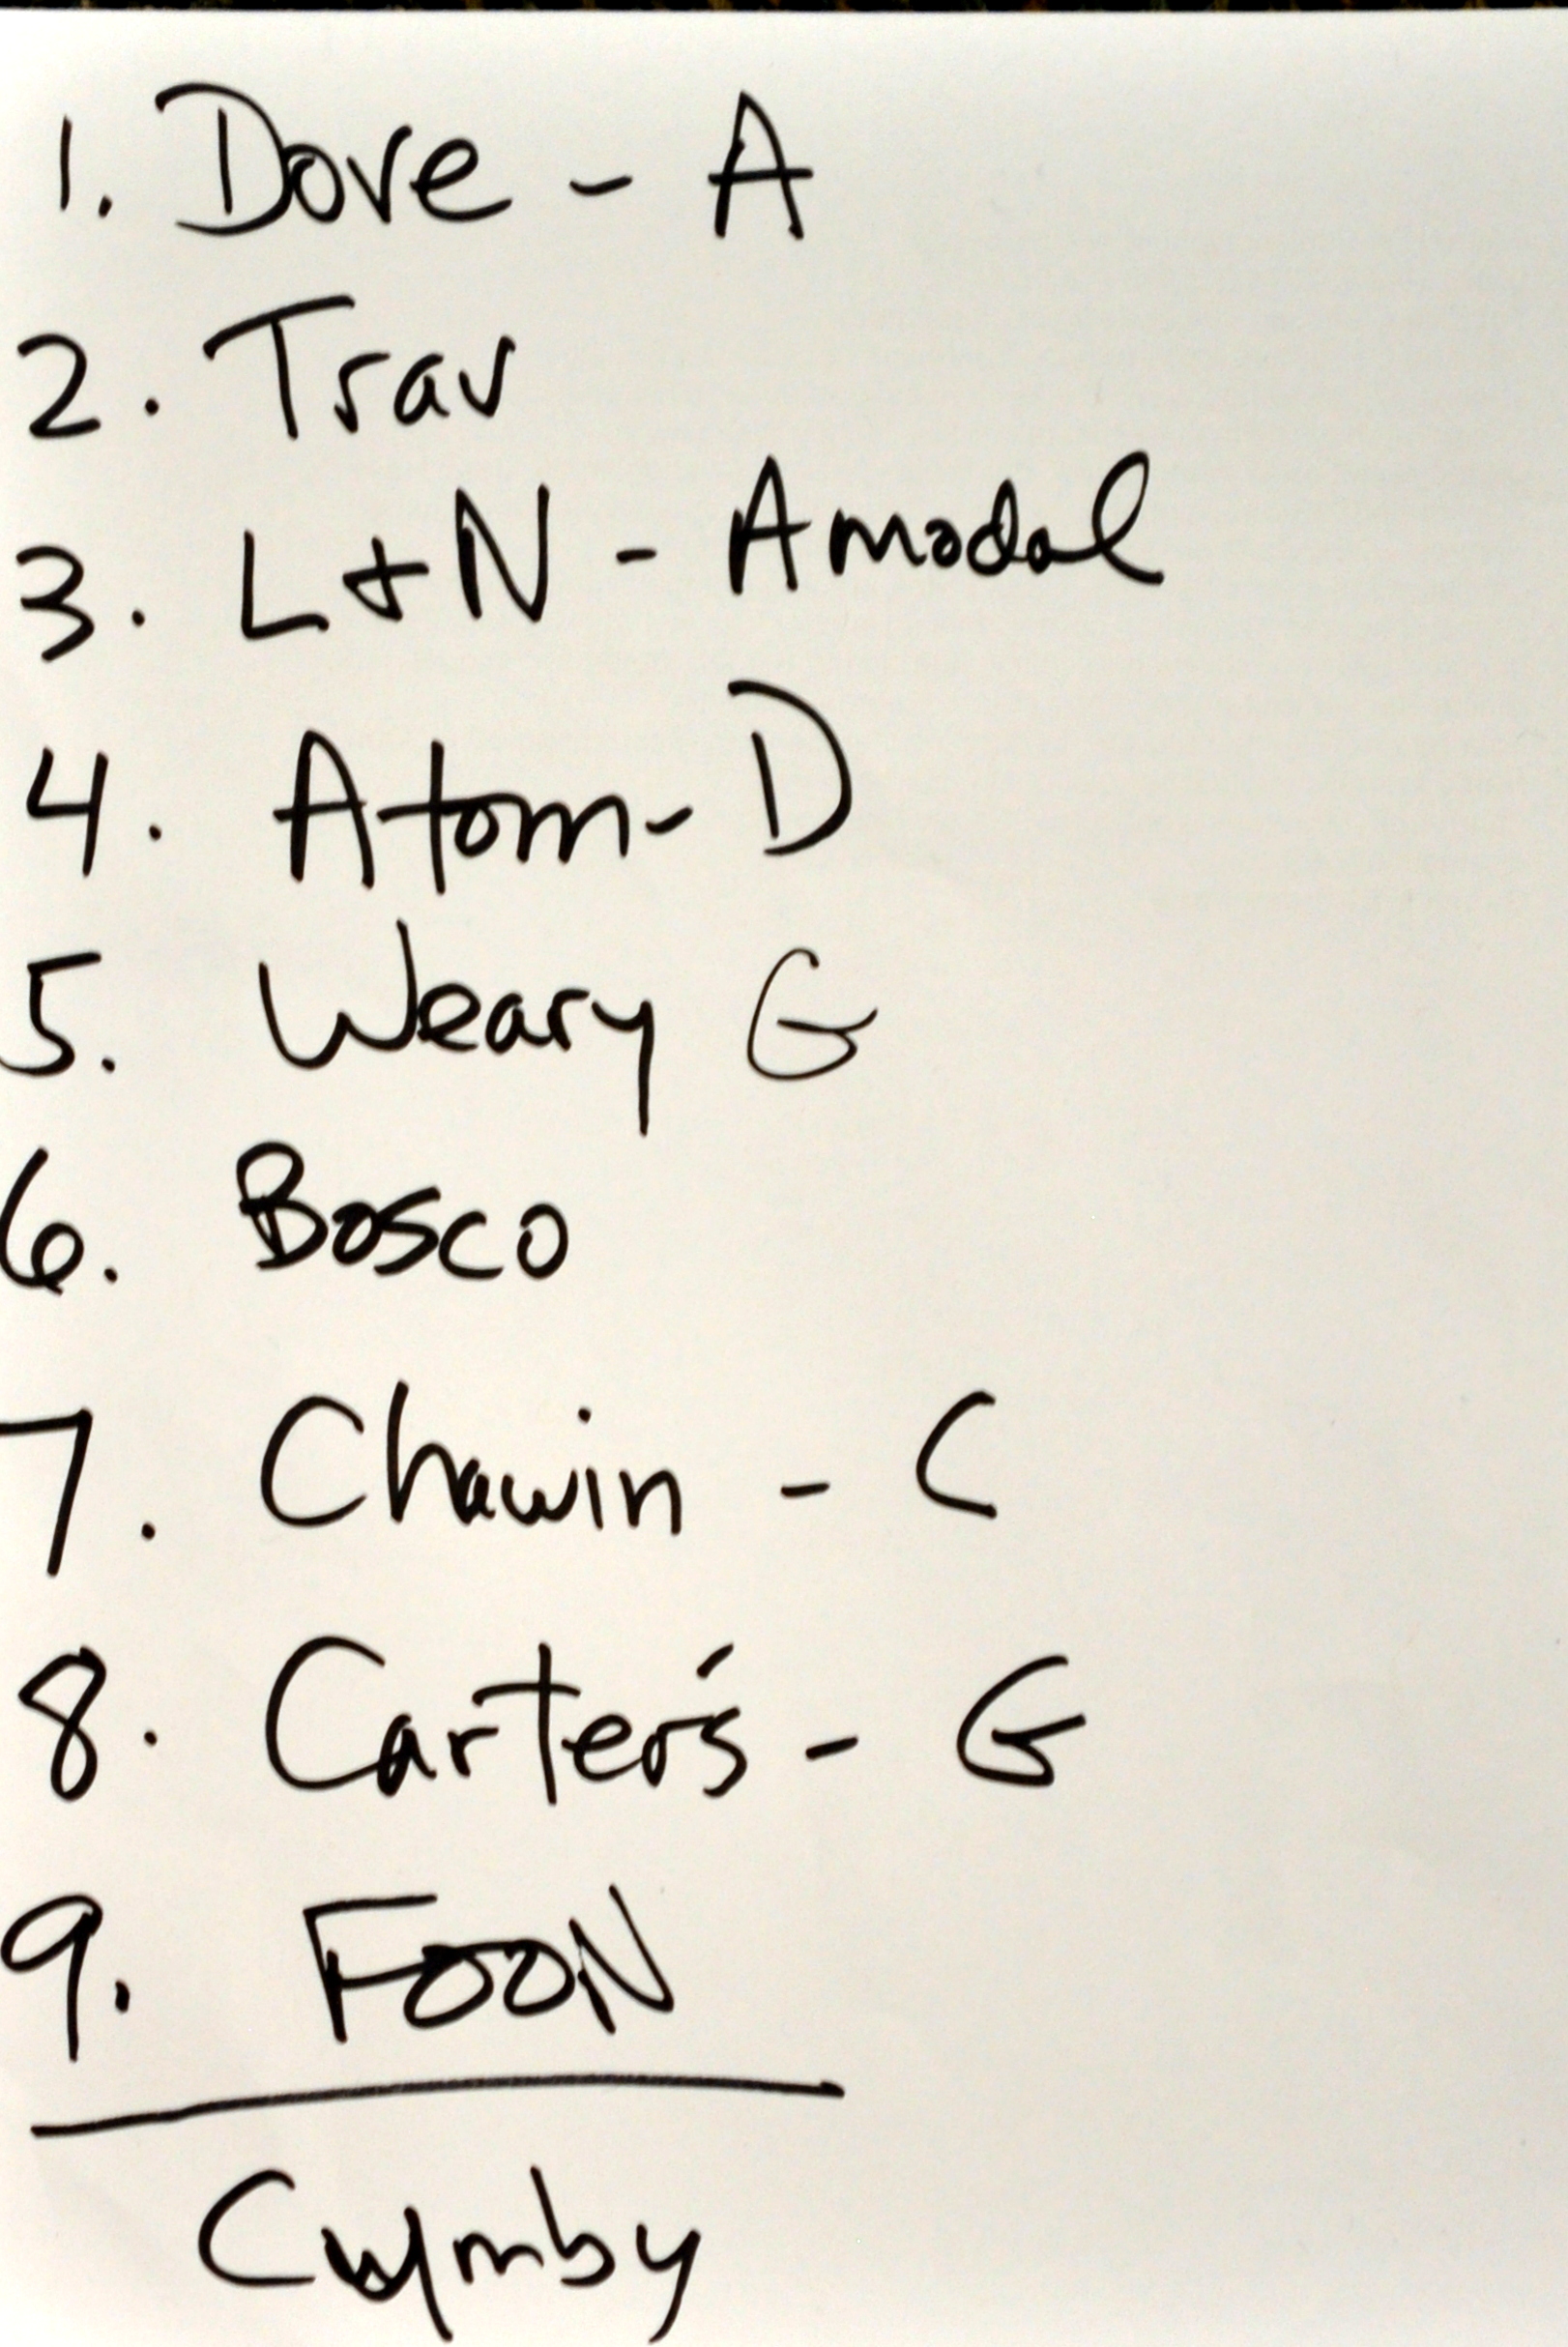 1. Dove - A
2. Trav
3. L + N - Amodal
4. Atom - D
5. Weary G
6. Bosco
7. Chawin - C
8. Carter's - G
9. FOON
Cwymby